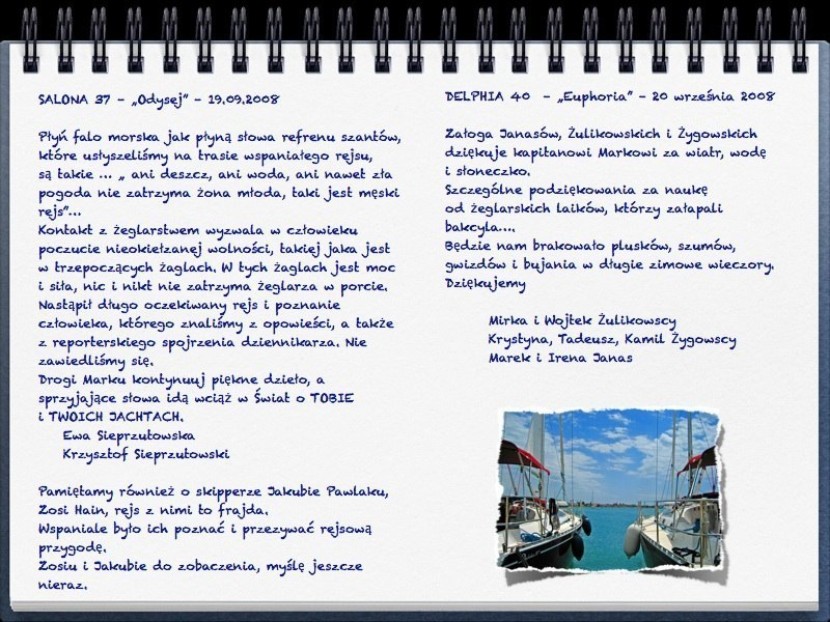 SALONA 37 – „Odysej” – 19.09.2008
Płyń falo morska jak płyną słowa refrenu szantów,
które usłyszeliśmy na trasie wspaniałego rejsu,
są takie ... „ ani deszcz, ani woda, ani nawet zła
pogoda nie zatrzyma żona młoda, taki jest męski
rejs”...
Kontakt z żeglarstwem wyzwala w człowieku
poczucie nieokiełzanej wolności, takiej jaka jest
w trzepoczących żaglach. W tych żaglach jest moc
i siła, nic i nikt nie zatrzyma żeglarza w porcie.
Nastąpił długo oczekiwany rejs i poznanie
człowieka, którego znaliśmy z opowieści, a także
z reporterskiego spojrzenia dziennikarza. Nie
zawiedliśmy się.
Drogi Marku kontynuuj piękne dzieło, a
sprzyjające słowa idą wciąż w Świat o TOBIE
i TWOICH JACHTACH.
Ewa Sieprzutowska
Krzysztof Sieprzutowski
Pamiętamy również o skipperze Jakubie Pawlaku,
Zosi Hain, rejs z nimi to frajda.
Wspaniale było ich poznać i przezywać rejsową
przygodę.
Zosiu i Jakubie do zobaczenia, myślę jeszcze
nieraz.
DELPHIA 40 – „Euphoria” – 20 września 2008
Załoga Janasów, Żulikowskich i Żygowskich
dziękuje kapitanowi Markowi za wiatr, wodę
i słoneczko.
Szczególne podziękowania za naukę
od żeglarskich laików, którzy załapali
bakcyla....
Będzie nam brakowało plusków, szumów,
gwizdów i bujania w długie zimowe wieczory.
Dziękujemy
Mirka i Wojtek Żulikowscy
Krystyna, Tadeusz, Kamil Żygowscy
Marek i Irena Janas